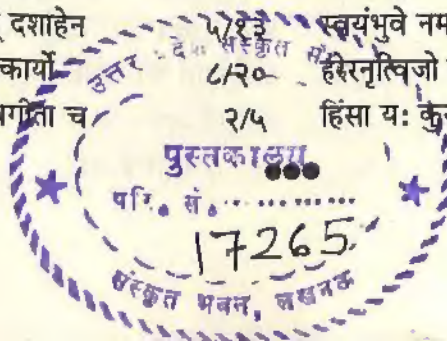 दशाहेन ५/१३ स्वयंभुवे नम
कार्यो ८/२० हरेरनृत्विजो
गीता च २/५ हिंसा यः कु
उत्तर देश संस्कृत सं
पुस्तकालय
परि. सं. ............
17265
संस्कृत भवन, लखनऊ